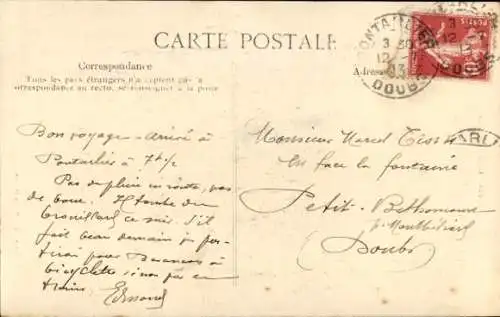 CARTE POSTALE
Correspondance
Tous les pays étrangers n'acceptent pas la
correspondance au recto, se renseigner à la poste
PONTARLIER
3 30
12
DOUBS
Bon voyage - Arrivé à
Pontarlier à 7h 1/2
Pas de pluie en route, pas
de boue. Il tombe du
brouillard ce soir. S'il
fait beau demain je par-
tirai pour Besançon à
bicyclette sinon par
train. Edmond
Monsieur Marcel
En face la fontaine
Petit-Bethoncourt
p. Montbéliard
Doubs